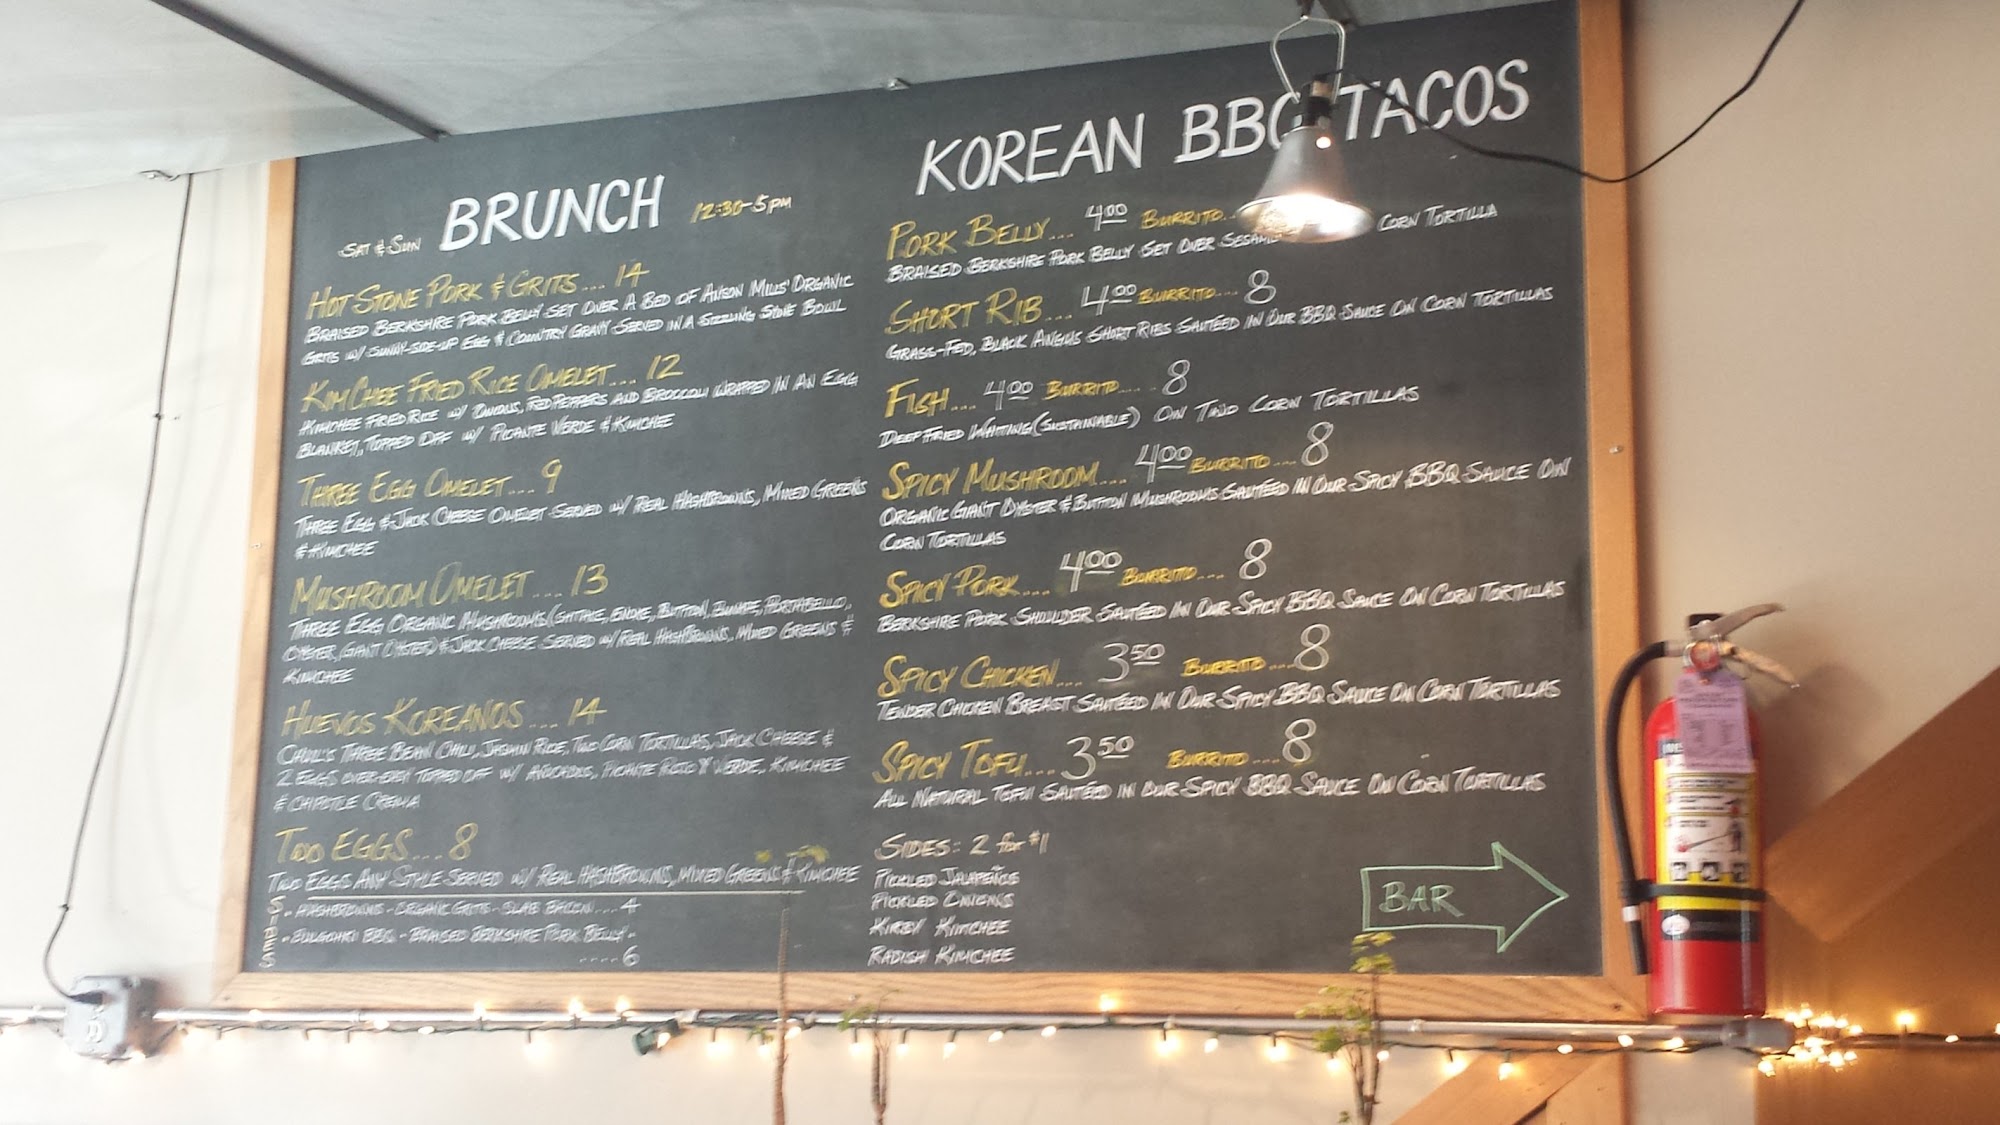 SAT & SUN BRUNCH 12:30-5PM
HOT STONE PORK & GRITS.... 14
BRAISED BERKSHIRE PORK BELLY SET OVER A BED OF ANSON MILLS' ORGANIC
GRITS W/ SUNNY-SIDE-UP EGG & COUNTRY GRAVY SERVED IN A SIZZLING STONE BOWL
KIM CHEE FRIED RICE OMELET.... 12
KIMCHEE FRIED RICE W/ ONIONS, RED PEPPERS AND BROCCOLI WRAPPED IN AN EGG
BLANKET, TOPPED OFF W/ PICANTE VERDE & KIMCHEE
THREE EGG OMELET.... 9
THREE EGG & JACK CHEESE OMELET SERVED W/ REAL HASHBROWNS, MIXED GREENS
& KIMCHEE
MUSHROOM OMELET.... 13
THREE EGG ORGANIC MUSHROOMS (SHITAKE, ENOKE, BUTTON, PORTABELLO,
OYSTER, GIANT OYSTER) & JACK CHEESE SERVED W/ REAL HASHBROWNS, MIXED GREENS &
KIMCHEE
HUEVOS KOREANOS.... 14
THREE BEAN CHILI, JASMIN RICE, TWO CORN TORTILLAS, JACK CHEESE &
2 EGGS OVER-EASY TOPPED OFF W/ AVOCADOS, PICANTE ROJO Y VERDE, KIMCHEE
& CHIPOTLE CREMA
TWO EGGS.... 8
TWO EGGS ANY STYLE SERVED W/ REAL HASHBROWNS, MIXED GREENS & KIMCHEE
SIDES
- HASHBROWNS - ORGANIC GRITS - SLAB BACON.... 4
- BULGOHKI BBQ - BRAISED BERKSHIRE PORK BELLY -
.... 6
KOREAN BBQ TACOS
PORK BELLY... 4.00 BURRITO..
BRAISED BERKSHIRE PORK BELLY SET OVER CORN TORTILLA
SHORT RIB... 4.00 BURRITO.... 8
GRASS-FED, BLACK ANGUS SHORT RIBS SAUTÉED IN OUR BBQ SAUCE ON CORN TORTILLAS
FISH.... 4.00 BURRITO..... 8
DEEP FRIED WHITING (SUSTAINABLE) ON TWO CORN TORTILLAS
SPICY MUSHROOM.... 4.00 BURRITO.... 8
ORGANIC GIANT OYSTER & BUTTON MUSHROOMS SAUTÉED IN OUR SPICY BBQ SAUCE ON
CORN TORTILLAS
SPICY PORK.... 4.00 BURRITO.... 8
BERKSHIRE PORK SHOULDER SAUTÉED IN OUR SPICY BBQ SAUCE ON CORN TORTILLAS
SPICY CHICKEN.... 3.50 BURRITO.... 8
TENDER CHICKEN BREAST SAUTÉED IN OUR SPICY BBQ SAUCE ON CORN TORTILLAS
SPICY TOFU.... 3.50 BURRITO.... 8
ALL NATURAL TOFU SAUTÉED IN OUR SPICY BBQ SAUCE ON CORN TORTILLAS
SIDES: 2 for $1
PICKLED JALAPEÑOS
PICKLED ONIONS
KIRBY KIMCHEE
RADISH KIMCHEE
BAR